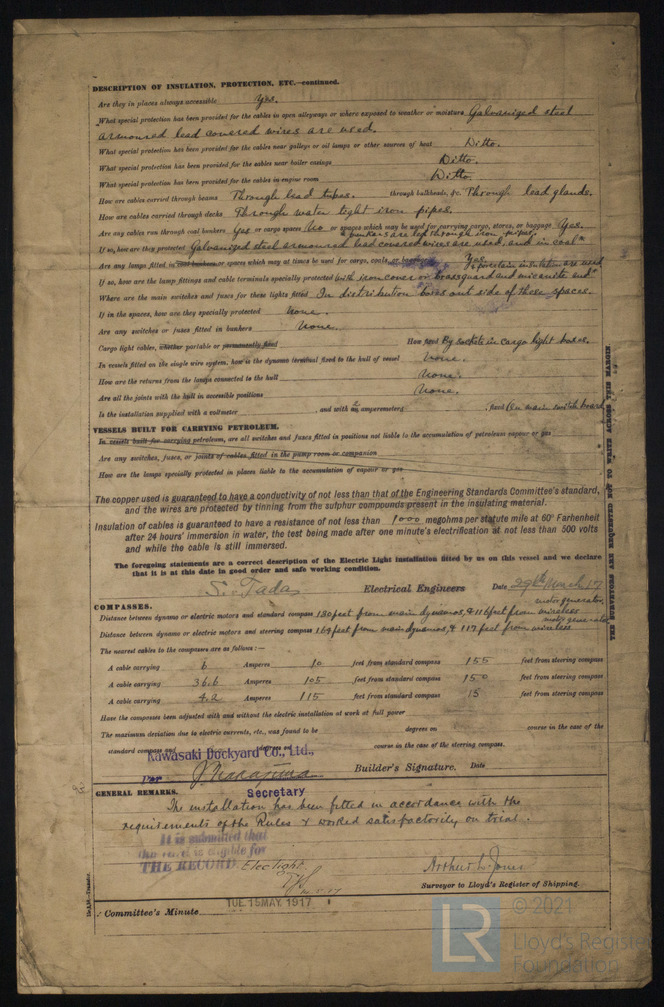 DESCRIPTION OF INSULATION, PROTECTION, ETC.—continued.
Are they in places always accessible Yes.
What special protection has been provided for the cables in open alleyways or where exposed to weather or moisture Galvanized steel
armoured lead covered wires are used.
What special protection has been provided for the cables near galleys or oil lamps or other sources of heat Ditto.
What special protection has been provided for the cables near boiler casings Ditto.
What special protection has been provided for the cables in engine room Ditto.
How are cables carried through beams Through lead tubes. through bulkheads, &c. Through lead glands.
How are cables carried through decks Through water tight iron pipes.
Are any cables run through coal bunkers Yes or cargo spaces No or spaces which may be used for carrying cargo, stores, or baggage Yes.
bunkers are led through iron pipes.
If so, how are they protected Galvanized steel armoured lead covered wires are used, and in coal
Are any lamps fitted in coal bunkers or spaces which may at times be used for cargo, coals, or baggage Yes.
If so, how are the lamp fittings and cable terminals specially protected with iron cover or brass guard and micanite and
porcelain insulation are used
Where are the main switches and fuses for these lights fitted In distribution boxes out side of these spaces.
If in the spaces, how are they specially protected None.
Are any switches or fuses fitted in bunkers None.
Cargo light cables, whether portable or permanently fixed How fixed By sockets in cargo light boxes.
In vessels fitted on the single wire system, how is the dynamo terminal fixed to the hull of vessel None.
How are the returns from the lamps connected to the hull None.
Are all the joints with the hull in accessible positions None.
Is the installation supplied with a voltmeter , and with 2 an amperemeters , fixed On main switch board
VESSELS BUILT FOR CARRYING PETROLEUM.
In vessels built for carrying petroleum, are all switches and fuses fitted in positions not liable to the accumulation of petroleum vapour or gas
Are any switches, fuses, or joints of cables fitted in the pump room or companion
How are the lamps specially protected in places liable to the accumulation of vapour or gas
The copper used is guaranteed to have a conductivity of not less than that of the Engineering Standards Committee's standard,
and the wires are protected by tinning from the sulphur compounds present in the insulating material.
Insulation of cables is guaranteed to have a resistance of not less than 1000 megohms per statute mile at 60° Farhenheit
after 24 hours' immersion in water, the test being made after one minute's electrification at not less than 500 volts
and while the cable is still immersed.
The foregoing statements are a correct description of the Electric Light installation fitted by us on this vessel and we declare
that it is at this date in good order and safe working condition.
Tada Electrical Engineers Date 29th March 17
COMPASSES.
motor generator.
Distance between dynamo or electric motors and standard compass 130 feet from main dynamos, & 116 feet from wireless
motor generator
Distance between dynamo or electric motors and steering compass 169 feet from main dynamos, & 117 feet from wireless
The nearest cables to the compasses are as follows:—
A cable carrying 6 Amperes 10 feet from standard compass 155 feet from steering compass
A cable carrying 36.6 Amperes 105 feet from standard compass 150 feet from steering compass
A cable carrying 4.2 Amperes 115 feet from standard compass 15 feet from steering compass
Have the compasses been adjusted with and without the electric installation at work at full power
The maximum deviation due to electric currents, etc., was found to be degrees on course in the case of the
standard compass and degrees on course in the case of the steering compass.
Kawasaki Dockyard Co., Ltd.,
Per Builder's Signature. Date
Secretary
GENERAL REMARKS.
The installation has been fitted in accordance with the
requirements of the Rules & worked satisfactorily on trial.
It is submitted that
this vessel is eligible for
THE RECORD. Elec light
Arthur L. Jones
Surveyor to Lloyd's Register of Shipping.
Committee's Minute TUE. 15 MAY. 1917
THE SURVEYORS ARE REQUESTED NOT TO WRITE ACROSS THIS MARGIN.
LR
© 2021
Lloyd's Register
Foundation